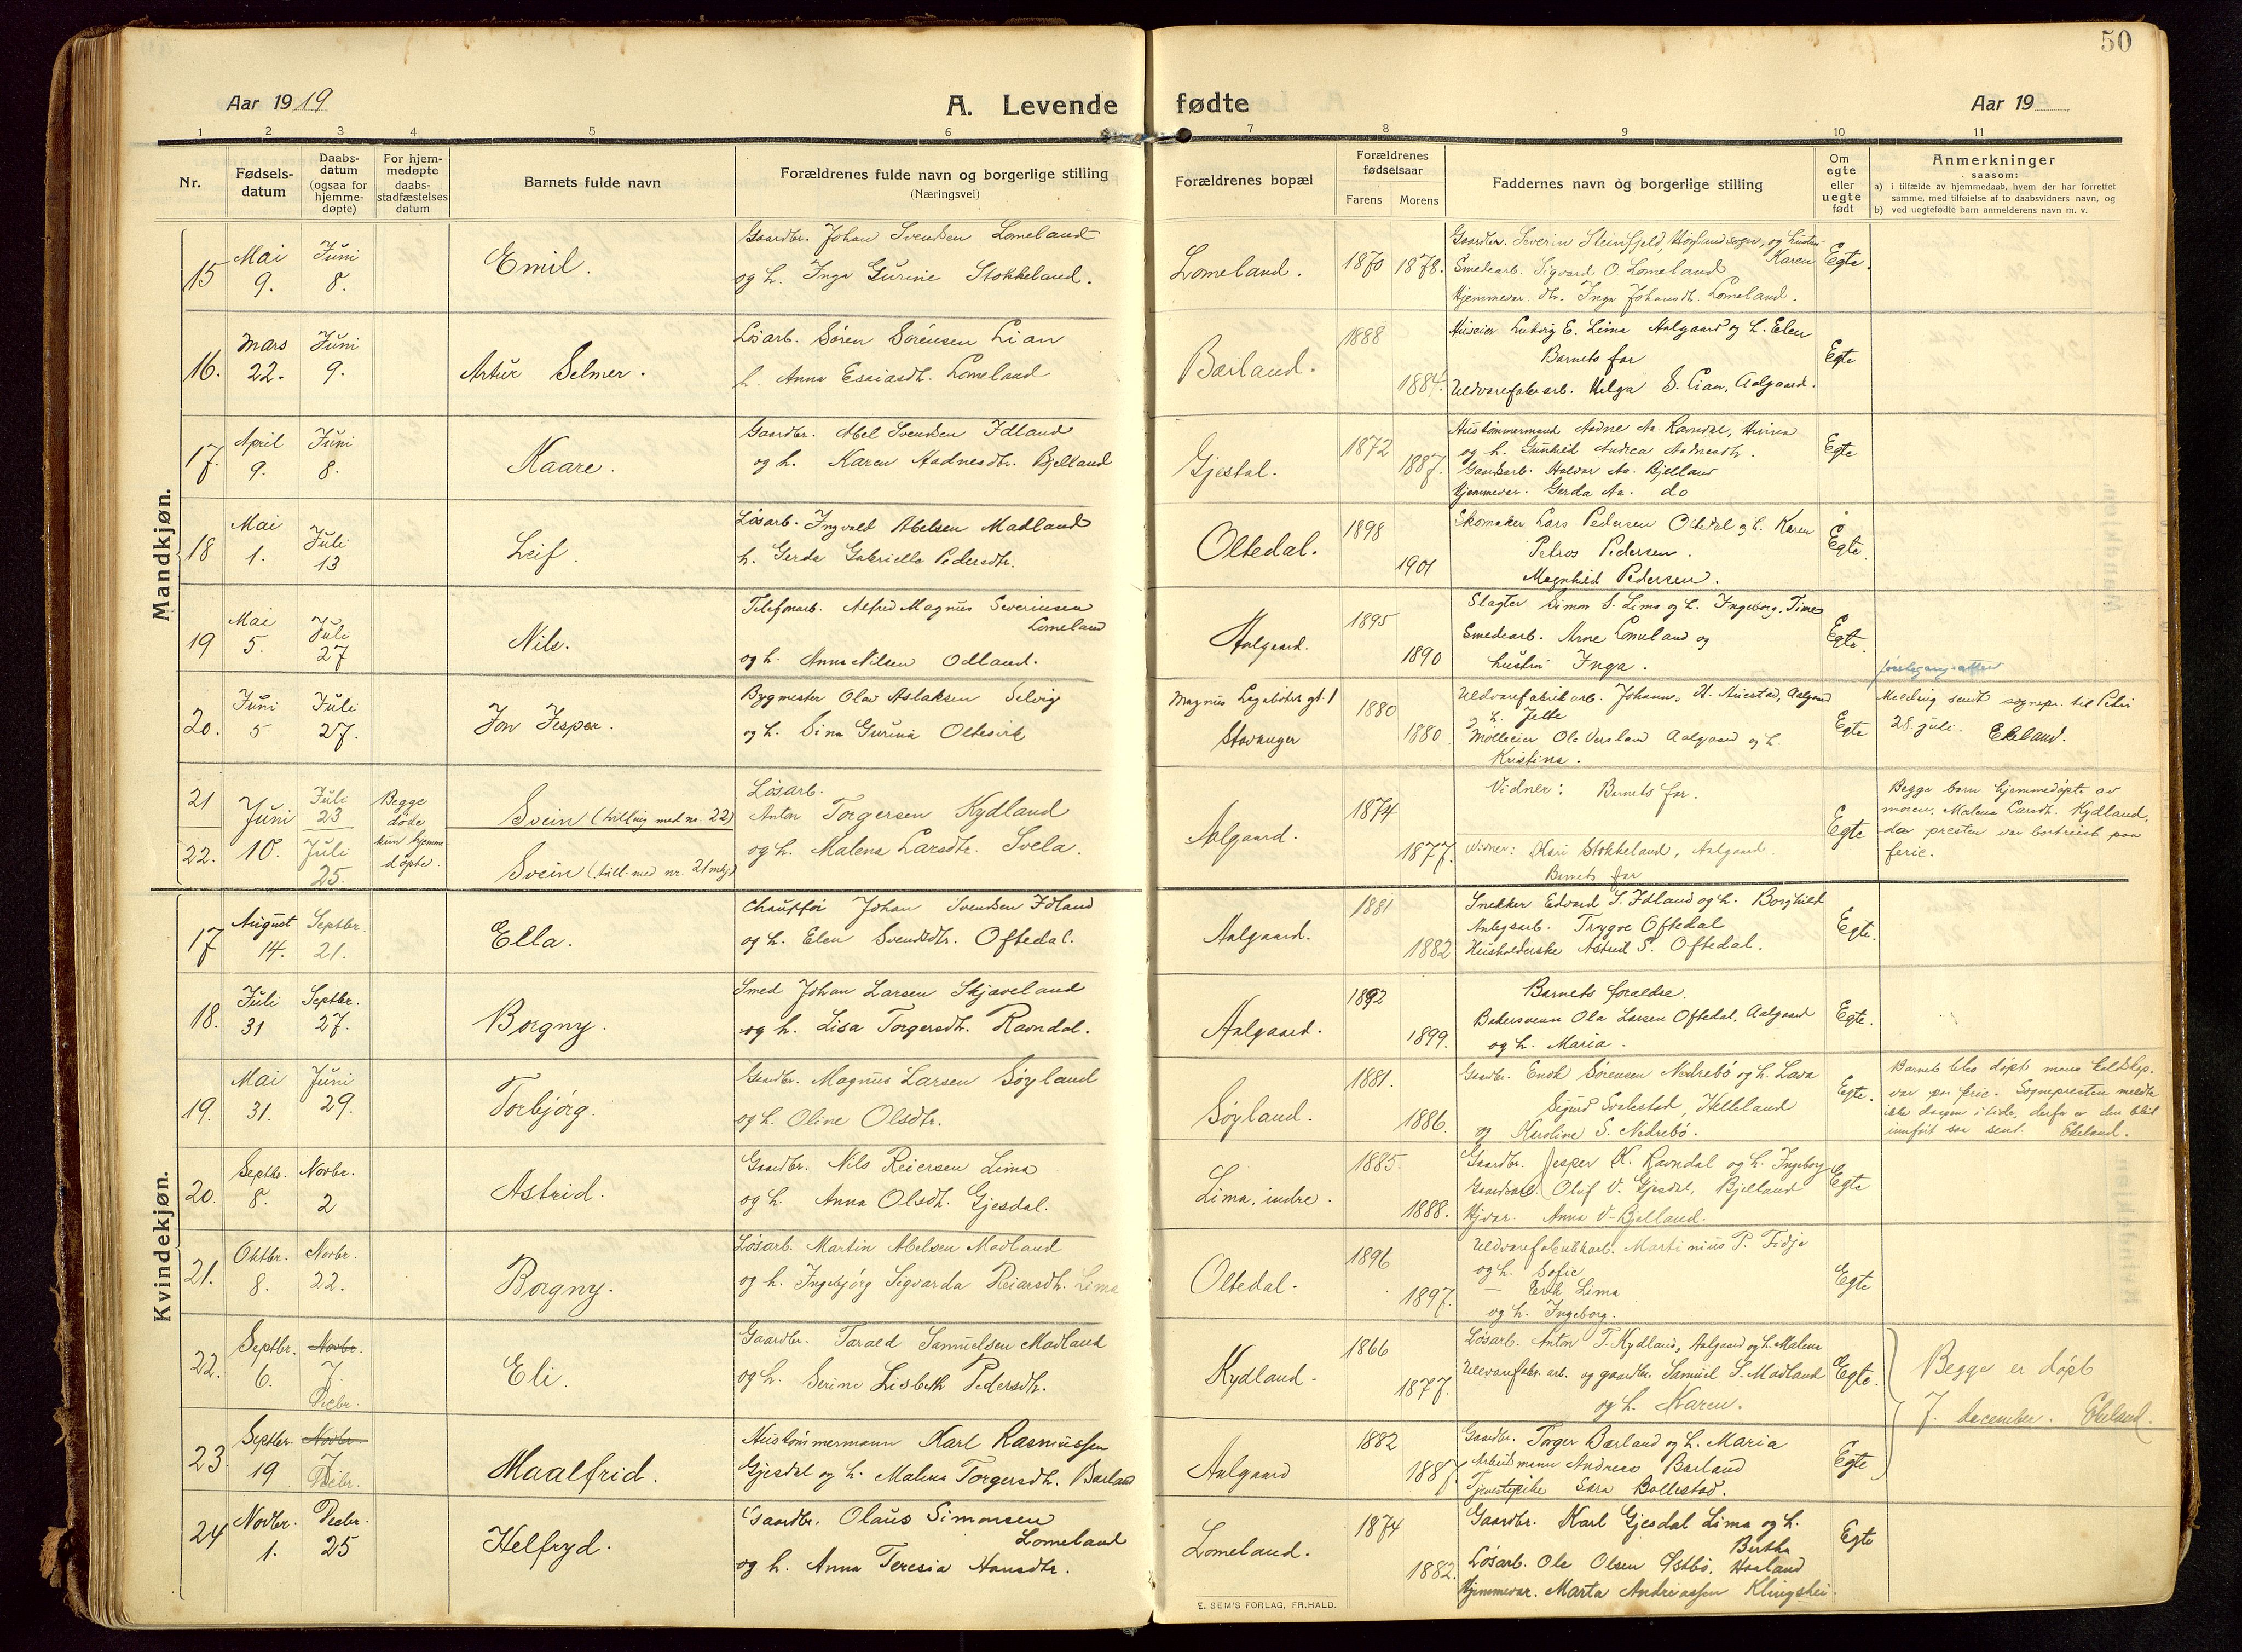 50
Aar 1919
A. Levende fødte
Aar 19
1 2 3 4 5 6 7 8 9 10 11
Nr.
Fødsels-
datum
Daabs-
datum
(ogsaa for
hjemme-
døpte)
For hjem-
medøpte
daabs-
stadfæstelses
datum
Barnets fulde navn
Forældrenes fulde navn og borgerlige stilling
(Næringsvei)
Forældrenes bopæl
Forældrenes
fødselsaar
Farens Morens
Faddernes navn og borgerlige stilling
Om
egte
eller
uegte
født
Anmerkninger
saasom:
a) i tilfælde av hjemmedaab, hvem der har forrettet
samme, med tilføielse af to daabsvidners navn, og
b) ved uegtefødte barn anmelderens navn m. v.
Mandkjøn.
15
Mai
9.
Juni
8.
Emil.
Gaardbr. Johan Svendsen Lomeland
og h. Inga Gurine Stokkeland.
Lomeland.
1870 1878.
Gaardbr. Severin Steinfjeld, Høylandsogn, og hustru
Karen
Smedearb. Sigvard O. Lomeland
Hjemmevær. dtr. Inga Johansdt. Lomeland.
Egte.
16.
Mars
22.
Juni
9.
Artur Selmer.
Løsarb. Søren Sørensen Lian
h. Anna Esaiasdt. Lomeland
Bærland.
1888
1884.
Huseier Ludvig E. Lima Aalgaard og h. Elen
Barnets far
Uldvarefabr arb. Helga S. Lian, Aalgaard.
Egte
17.
April
9.
Juni
8.
Kaare.
Gaardbr. Abel Svendsen Idland
og h. Karen Aadnesdtr. Bjelland
Gjestal.
1872
1887.
Hustømmermand Aadne Aa. Ravndal,
og h. Gunhild Andrea Aadnesdt.
Gaardarb. Halvar Aa. Bjelland
Hjemmevær. Gerda Aa. do
Egte
18
Mai
1.
Juli
13
Leif.
Løsarb. Ingvald Abelsen Madland
h. Gerda Gabrielle Pedersdtr.
Oltedal.
1898
1901
Skomaker Lars Pedersen Oltedal og h. Karen
Petros Pedersen.
Magnhild Pedersen.
Egte.
19
Mai
5.
Juli
27
Nils.
Telefonarb. Alfred Magnus Severinsen
Lomeland
og h. Anna Nilsen Odland.
Aalgaard.
1895
1890
Slagter Simon S. Lima og h. Ingeborg, Time
Smedearb. Arne Lomeland og
hustru Inga.
Egte.
20.
Juni
5
Juli
27.
Jon Jesper.
Bygmester Olav Aslaksen Selvig
og h. Sina Gurina Oltesvik
Magnus Lagabøters gt. 1
Stavanger
1880
1880
Uldvarefabrikarb. Johannes H. Auestad, Aalgaard
og h. Jette
Mølleeier Ole Versland Aalgaard og h.
Kristina.
Egte
Melding sendt sognepr. til Petri
28. juli. Ekeland.
21
22.
Juni
10.
Juli
23
Juli
25.
Begge
døde
kun hjemme-
døpte.
Svein (tvilling med nr. 22)
Svein (tvill med nr. 21 mkj)
Løsarb.
Anton Torgersen Kydland
og h. Malena Larsdtr. Svela.
Aalgaard.
1874
1877.
Vidner: Barnets far.
Vidner: Kari Stokkeland, Aalgaard.
Barnets far
Egte
Begge barn hjemmedøpte av
moren, Malena Larsdt. Kydland,
da presten var bortreist paa
ferie.
Kvindekjøn.
17
August
14.
Septbr.
21.
Ella.
Chauffør Johan Svendsen Idland
og h. Elen Svendsdtr. Oftedal.
Aalgaard.
1881
1882
Snekker Edvard S. Idland og h. Borghild
Anlegsarb. Trygve Oftedal
Husholderske Astrid S. Oftedal.
Egte.
18.
Juli
31
Septbr.
27.
Borgny.
Smed Johan Larsen Skjæveland
og h. Lisa Torgersdt. Ravndal.
Aalgaard.
1892
1899.
Barnets foreldre.
Bakersvenn Ola Larsen Oftedal, Aalgaard
og h. Maria.
Egte.
19.
Mai
31.
Juni
29.
Torbjørg.
Gaardbr. Magnus Larsen Søyland
og h. Oline Olsdtr.
Søyland.
1881.
1886.
Gaardbr. Enok Sørensen Nedrebø og h. Lava
Sigurd Svalestad, Helleland
og Karoline S. Nedrebø.
Egte.
Barnet blev døpt mens
var paa ferie. Sognepresten meldte
ikke daapen i tide, derfor er den blit
innført saa sent. Ekeland.
20.
Septbr.
8.
Novbr.
2
Astrid.
Gaardbr. Nils Reiersen Lima
og h. Anna Olsdt. Gjesdal.
Lima, indre.
1885.
1888.
Gaardbr. Jesper K. Ravndal og h. Ingeborg
Gaardarb. Oluf V. Gjesdal, Bjelland
Hjvær. Anna V. Bjelland.
Egte
21.
Oktbr.
8.
Novbr.
22.
Borgny.
Løsarb. Martin Abelsen Madland
og h. Ingebjørg Sigvarda Reiarsdt. Lima
Oltedal.
1896
1897.
Uldvarefabrikkarb. Martinius P. Fidje
og h. Sofie
— Erik Lima
og h. Ingeborg.
Egte
22.
Septbr.
6.
Novbr.
7.
Decbr.
Eli.
Gaardbr. Tarald Samuelsen Madland
og h. Serine Lisbeth Pedersdt.
Kydland.
1866
1877.
Løsarb. Anton T. Kydland, Aalgaard og h. Malena
Uldvarefabr. arb. og gaardbr. Samuel S. Madland
og h. Karen.
Egte.
Begge er døpt
7. december. Ekeland.
23.
Septbr.
19
Novbr.
7
Decbr.
Maalfrid.
Hustømmermann Karl Rasmussen
Gjesdal og h. Malena Torgersdt. Bærland
Aalgaard
1882
1887.
Gaardbr. Torger Bærland og h. Maria
Arbeidsmann Andreas Bærland
Tjenestepike Sara Bollestad.
Egte
24
Novbr.
1.
Decbr.
25
Helfryd.
Gaardbr. Olaus Simonsen
Lomeland
og h. Anna Teresia Hansdtr.
Lomeland.
1874
1882.
Gaardbr. Karl Gjesdal Lima og h.
Bertha
Løsarb. Ole Olsen Østbø, Haaland
Hjemmevær. Marta Andreassen Klingshei.
Egte
E. SEM'S FORLAG, FR.HALD.